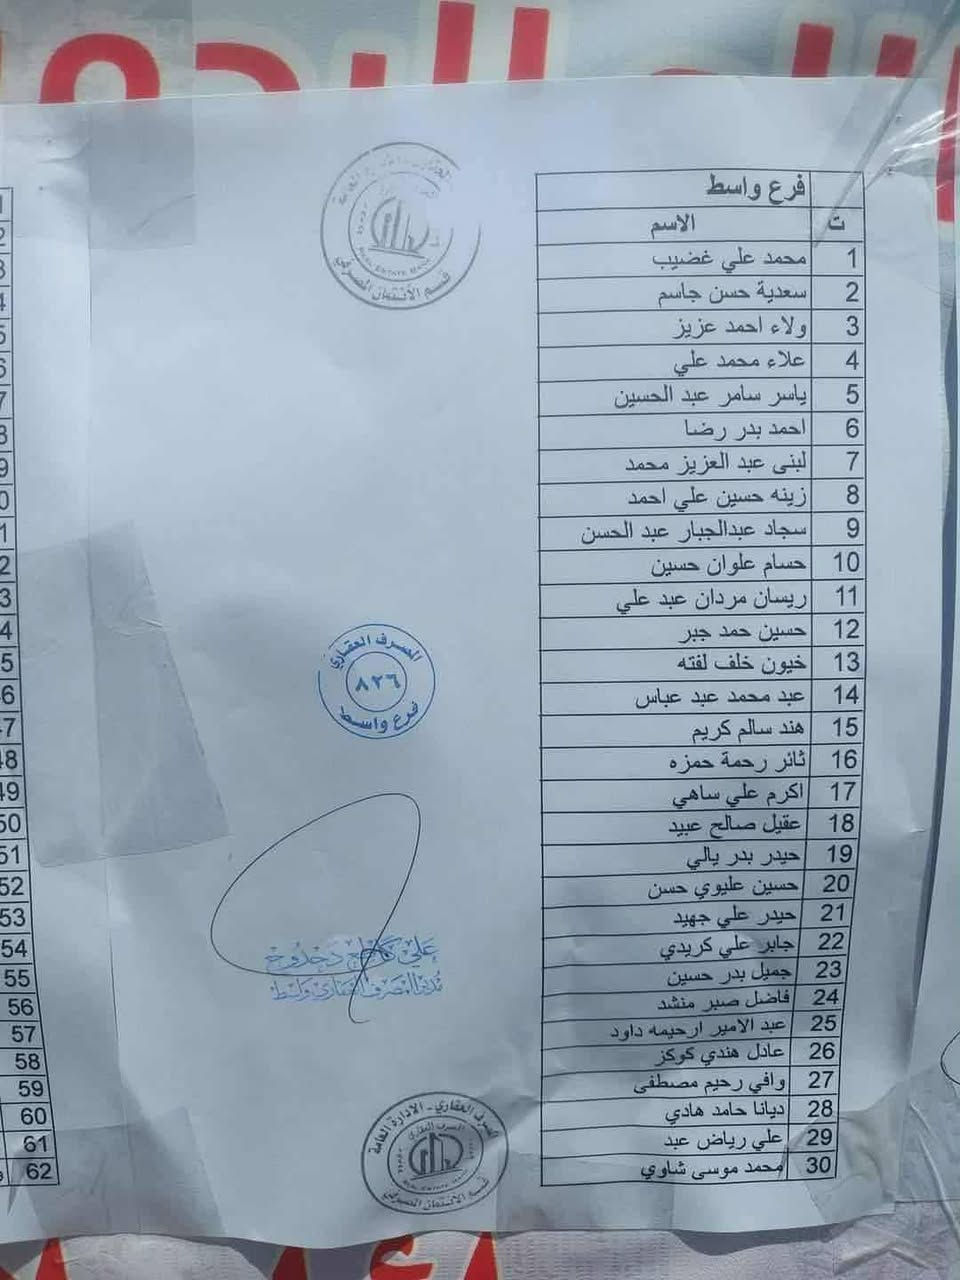 فرع واسط
ت الاسم
1 محمد علي غضيب
2 سعدية حسن جاسم
3 ولاء احمد عزيز
4 علاء محمد علي
5 ياسر سامر عبد الحسين
6 احمد بدر رضا
7 لبنى عبد العزيز محمد
8 زينه حسين علي احمد
9 سجاد عبدالجبار عبد الحسن
10 حسام علوان حسين
11 ريسان مردان عبد علي
12 حسين حمد جبر
13 خيون خلف لفته
14 عبد محمد عبد عباس
15 هند سالم كريم
16 ثائر رحمة حمزه
17 اكرم علي ساهي
18 عقيل صالح عبيد
19 حيدر بدر يالي
20 حسين عليوي حسن
21 حيدر علي جهيد
22 جابر علي كريدي
23 جميل بدر حسين
24 فاضل صبر منشد
25 عبد الامير ارحيمه داود
26 عادل هندي كوكز
27 وافي رحيم مصطفى
28 ديانا حامد هادي
29 علي رياض عبد
30 محمد موسى شاوي
قسم الأئتمان المصرفي
المصرف العقاري
٨٢٦
فرع واسط
علي كاطع دحدوح
مدير المصرف العقاري واسط
المصرف العقاري - الادارة العامة
المصرف العقاري
قسم الأئتمان المصرفي
50
51
52
53
54
55
56
57
58
59
60
61
62